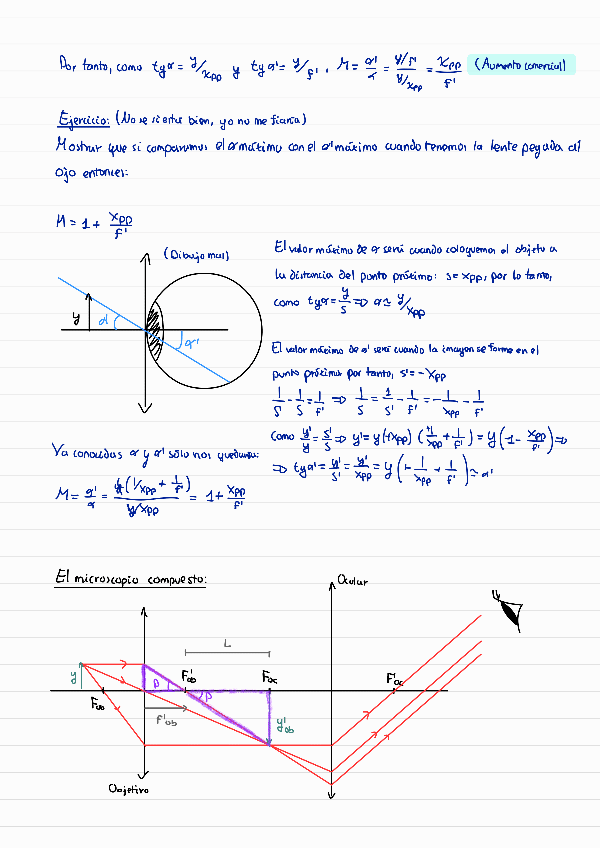 Por tanto, como tgα = y/xpp y tgα' = y/f', M = α'/α = (y/f')/(y/xpp) = xpp/f' (Aumento comercial)
Ejercicio: (No se si estas bien, yo no me fiaria)
Mostrar que si comparamos el α máximo con el α' máximo cuando tenemos la lente pegada al
ojo entonces:
M = 1 + xpp/f'
(Dibujo mal)
y
α
α'
El valor máximo de α será cuando coloquemos el objeto a
la distancia del punto próximo: s = xpp, por lo tanto,
como tgα = y/s ⇒ α ≃ y/xpp
El valor máximo de α' será cuando la imagen se forme en el
punto próximo por tanto, s' = -xpp
1/s' - 1/s = 1/f' ⇒ 1/s = 1/s' - 1/f' = -1/xpp - 1/f'
como y'/y = s'/s ⇒
⇒ tgα' = y'/s' = y'/xpp
Ya conocidos α y α' sólo nos quedaria:
M = α'/α = y(1/xpp + 1/f')/(y/xpp) = 1 + xpp/f'
El microscopio compuesto:
Ocular
L
y
Fob
β
F'ob
β
Foc
F'oc
f'ob
y'ob
Objetivo